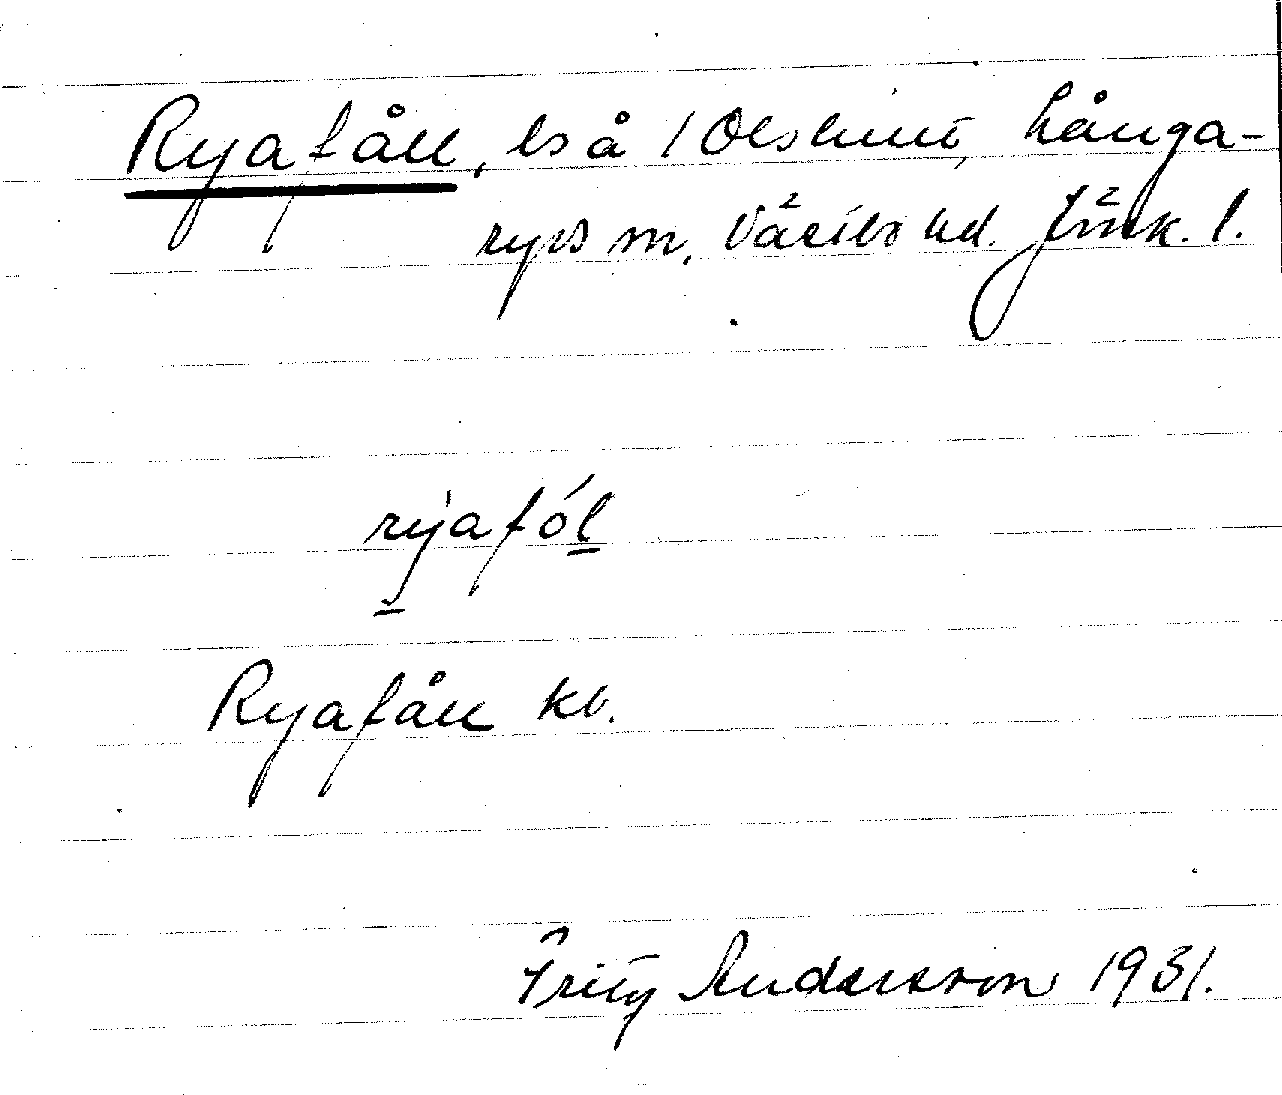 Ryafåll, ls å / Olshult, Långa-
ryds sn, Västbo hd. Jönk. l.
rýafól
Ryafåll kb.
Fritz Andersson 1931.